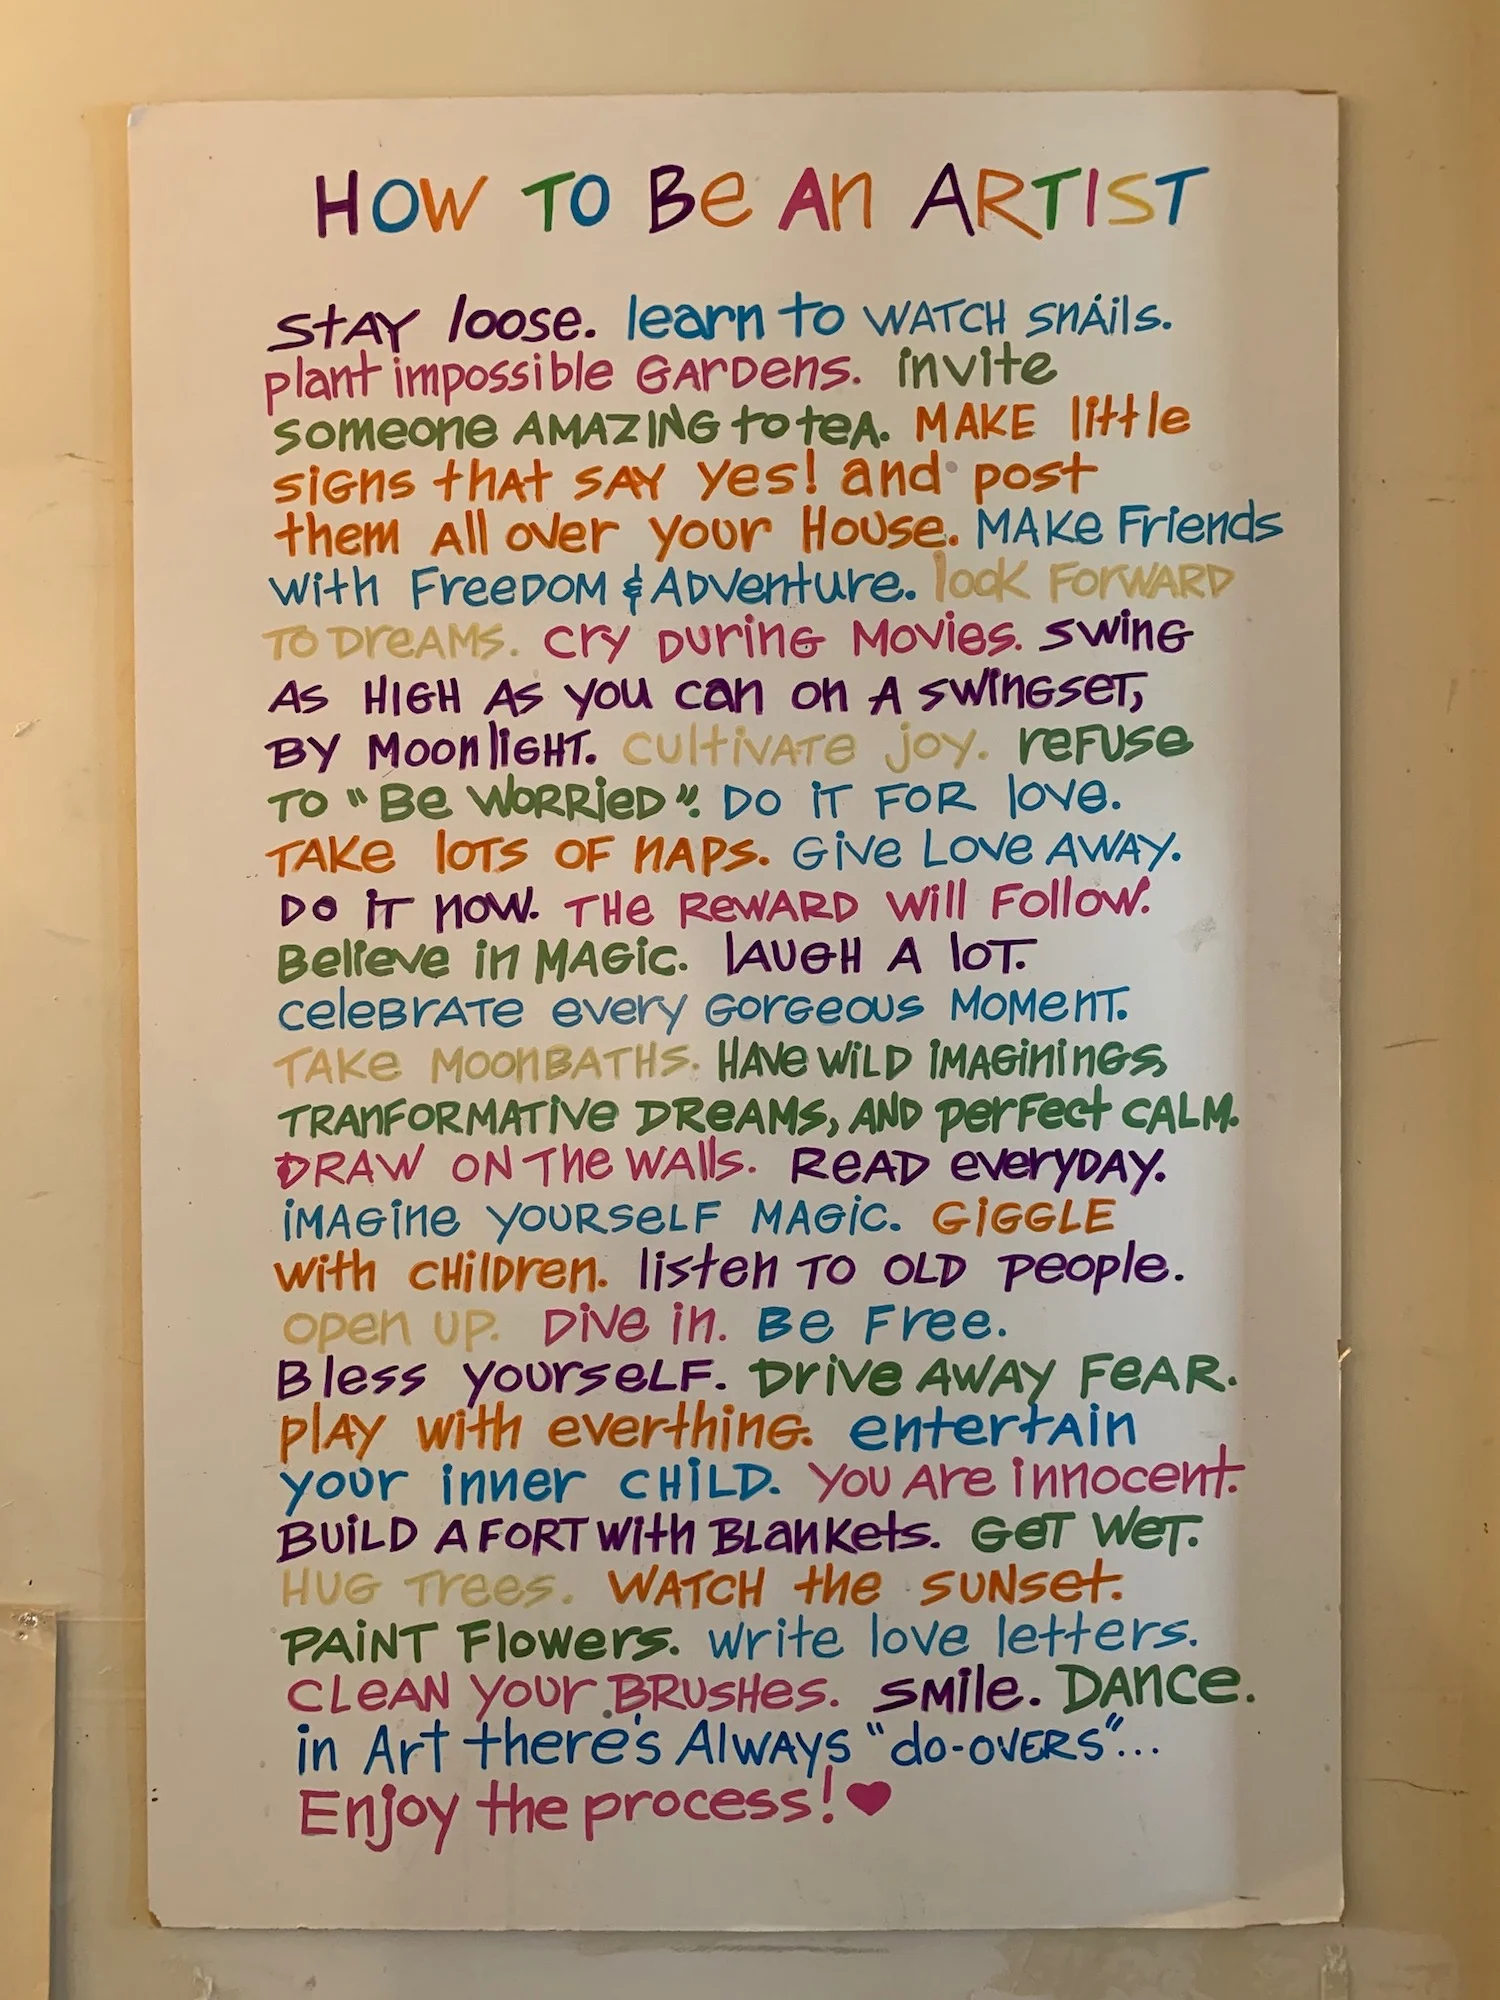 HOW TO Be An ARTIST
STAY loose. learn to WATCH SnAils.
plant impossible GARDenS. invite
someone AMAZING to teA. MAKE little
siGns thAt SAY yes! and post
them All over your House. MAKe Friends
with FreeDOM & ADVenture. look FORWARD
TO DreAMS. Cry DurinG Movies. SWinG
AS HIGH AS you can on A SWinGSeT,
BY MoonliGHT. CultivATe joy. reFUSe
TO "Be WORRieD". DO iT FOR love.
TAKe lOTS OF nAPS. Give Love AWAY.
DO iT nOW. THe ReWARD Will Follow.
Believe in MAGic. lAUGH A loT.
CeleBrATe every GorGeous MOMenT.
TAKe MOOnBATHS. HAVe WiLD iMAGininGS,
TRAnFORMATive DReAMS, AND perFect CALM.
DRAW ON The WAlls. ReAD everyDAY.
iMAGine YOURSeLF MAGiC. GiGGLE
with CHilDren. listen TO OLD people.
open UP. Dive in. Be Free.
Bless yourseLF. Drive AWAY FeAR.
plAY with everthinG. entertAin
your inner CHiLD. You Are innocent.
BUiLD A FORT With BLanKets. GeT WeT.
HUG Trees. WATCH the SUNset.
PAiNT Flowers. write love letters.
CLeAN your BRUSHes. SMile. DAnCe.
in Art there's AlWAYS "do-OVERS"...
Enjoy the process!♥